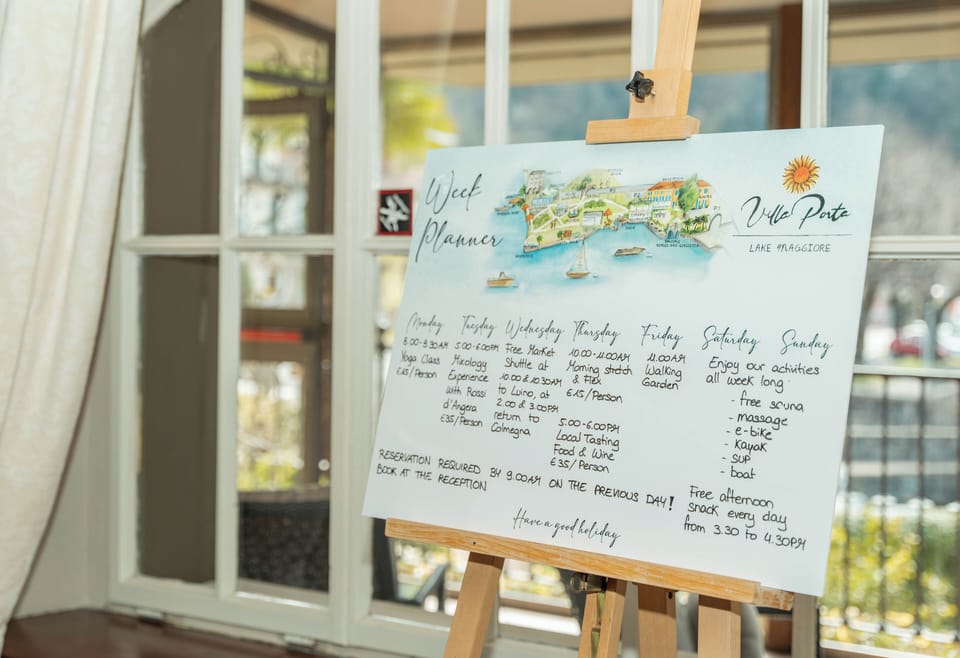 Week
Planner
Villa Porta
LAKE MAGGIORE
Monday
8.00-8.30AM
Yoga Class
€15/Person
Tuesday
5.00-6.00PM
Mixology
Experience
with Rossi
d'Angera
€35/Person
Wednesday
Free Market
Shuttle at
10.00 & 10.30AM
to Luino, at
2.00 & 3.00PM
return to
Colmegna
Thursday
10.00-11.00AM
Morning stretch
& Flex
€15/Person
5.00-6.00PM
Local Tasting
Food & Wine
€35/Person
Friday
11.00AM
Walking
Garden
Saturday Sunday
Enjoy our activities
all week long:
- free sauna
- massage
- e-bike
- Kayak
- SUP
- boat
Free afternoon
snack every day
from 3.30 to 4.30PM
RESERVATION REQUIRED BY 9.00AM ON THE PREVIOUS DAY!
BOOK AT THE RECEPTION
Have a good holiday